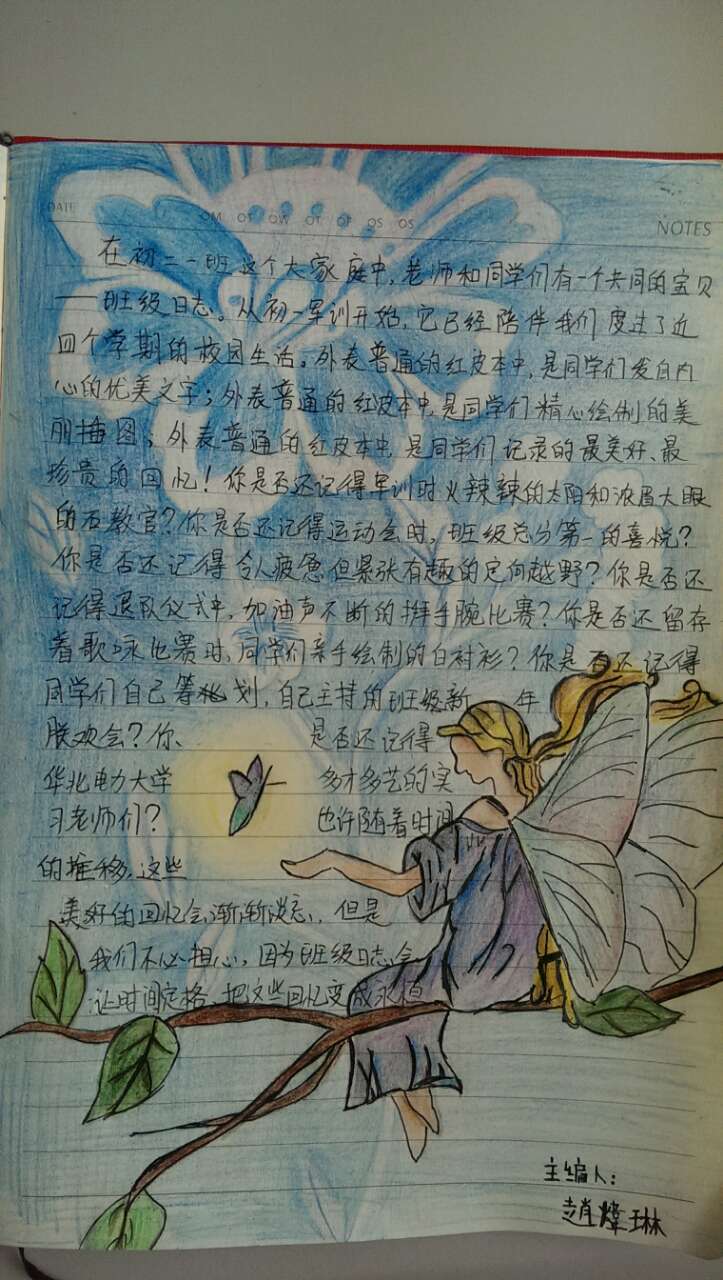 DATE
MO TO WO TO FO SO SO
NOTES
在初二一班这个大家庭中,老师和同学们有一个共同的宝贝
——班级日志。从初一军训开始,它已经陪伴我们度过了近
四个学期的校园生活。外表普通的红皮本中,是同学们发自内
心的优美文字;外表普通的红皮本中,是同学们精心绘制的美
丽插图;外表普通的红皮本中,是同学们记录的最美好、最
珍贵的回忆!你是否还记得军训时火辣辣的太阳和浓眉大眼
的石教官?你是否还记得运动会时,班级总分第一的喜悦?
你是否还记得令人疲惫但紧张有趣的定向越野?你是否还
记得退队仪式中,加油声不断的掰手腕比赛?你是否还留存
着歌咏比赛时,同学们亲手绘制的白衬衫?你是否还记得
同学们自己筹划,自己主持的班级新年
联欢会?你是否还记得
华北电力大学多才多艺的实
习老师们?也许随着时间
的推移,这些
美好的回忆会渐渐淡忘,但是
我们不必担心,因为班级日志会
让时间定格,把这些回忆变成永恒
主编人:
赵 琳